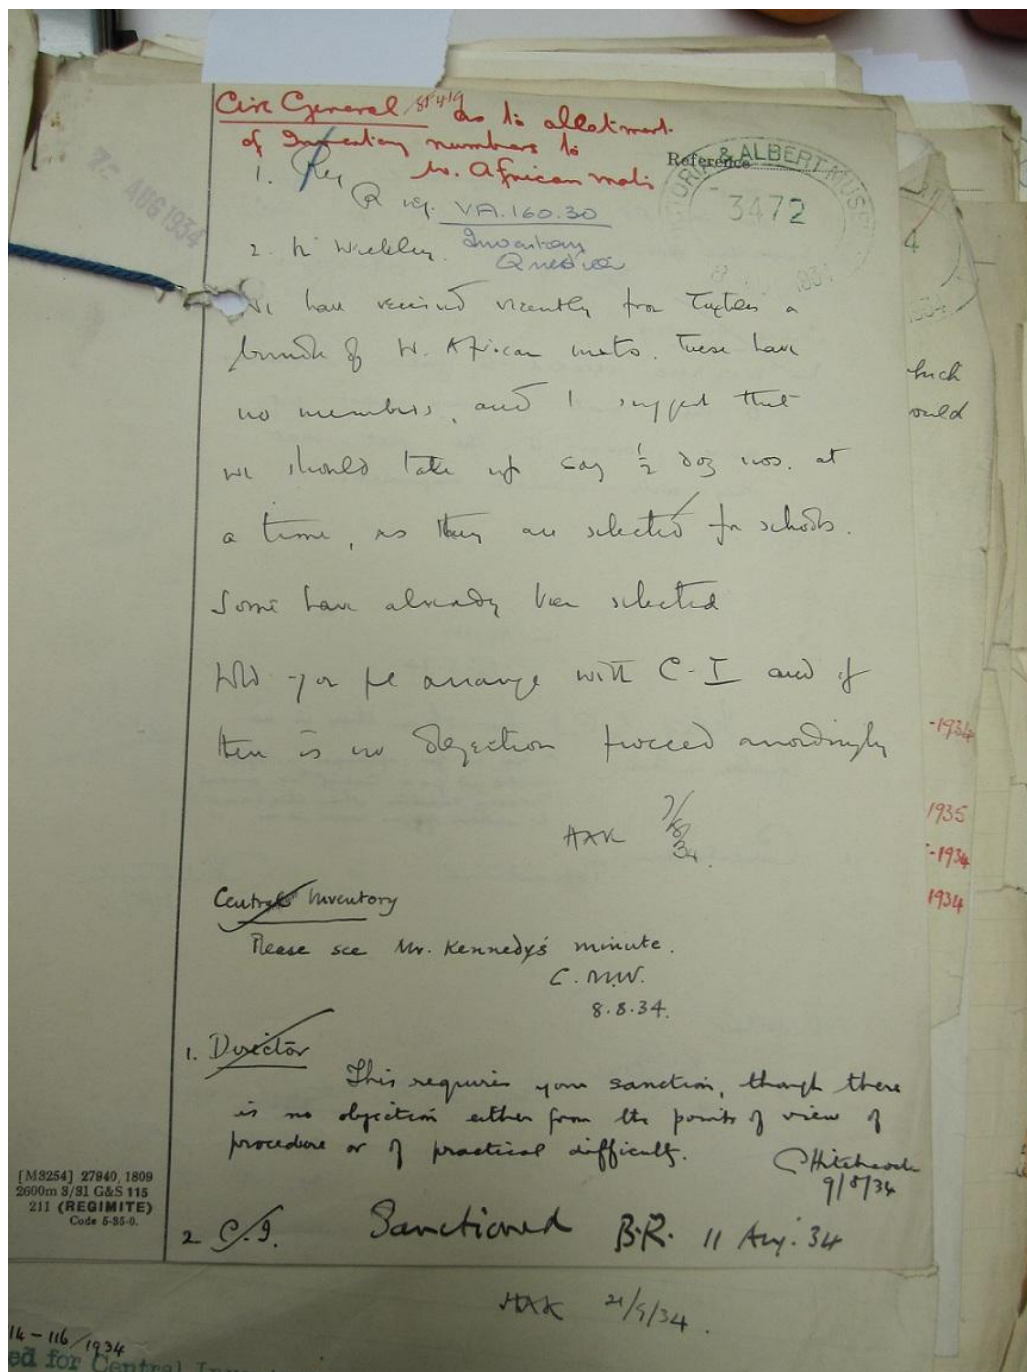 Circ General as to allotment
of Inventory numbers to
W. African mats
Reference
VICTORIA & ALBERT MUS
3472
7 AUG 1934
1. Reg
R reg. VA.160.30
Inventory
Question
2. Mr Wickley.
We have received recently from Textiles a
bundle of W. African mats. These have
no numbers, and I suggest that
we should take up say ½ doz nos. at
a time, as they are selected for schools.
Some have already been selected
Wld you pl arrange with C-I and if
there is no objection proceed accordingly
HAK 7/8/34.
Central Inventory
Please see Mr. Kennedy's minute.
C.M.W.
8.8.34.
1. Director
This requires your sanction, though there
is no objection either from the points of view of
procedure or of practical difficulty.
CHitchcock
9/8/34
[M3254] 27940, 1809
2600m 3/31 G&S 115
211 (REGIMITE)
Code 5-35-0.
2 C.I. Sanctioned B.R. 11 Aug. 34
HAK 21/9/34.
14-116/1934
ed for Central
hich
ould
-1934
1935
-1934
1934